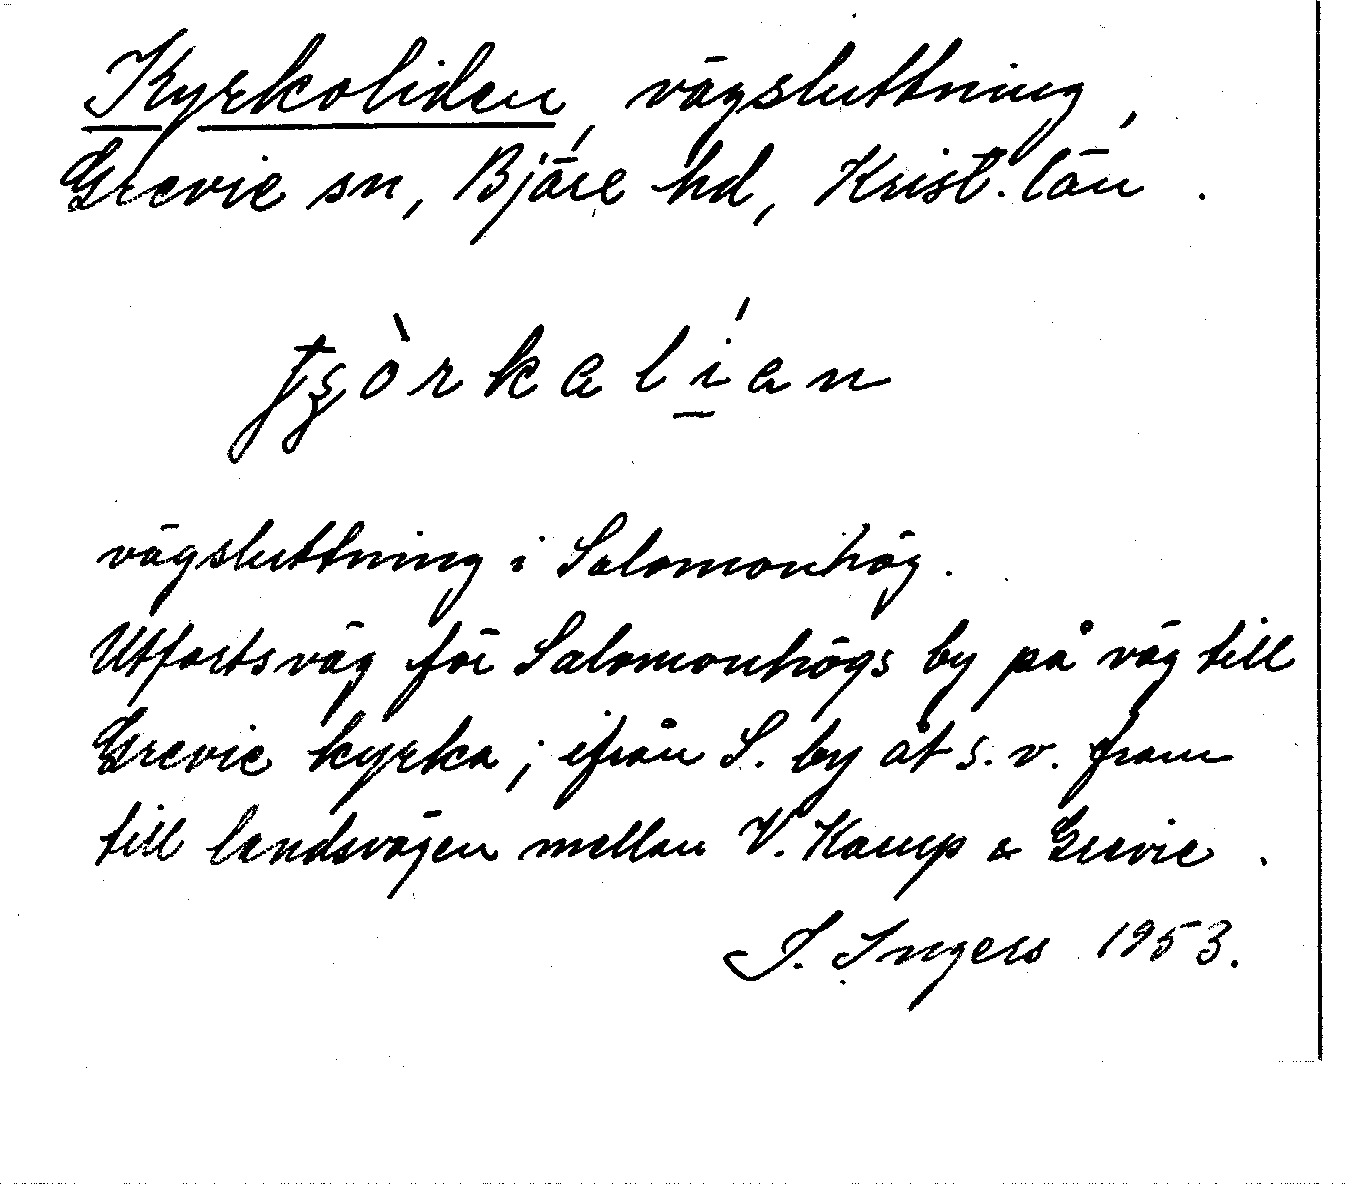 Kyrkoliden, vägsluttning,
Grevie sn, Bjäre hd, Krist. län.
vägsluttning i Salomonhög.
Utfartsväg för Salomonhögs by på väg till
Grevie kyrka; ifrån S. by åt s.v. fram
till landsvägen mellan V. Karup o Grevie.
I. Ingers 1953.